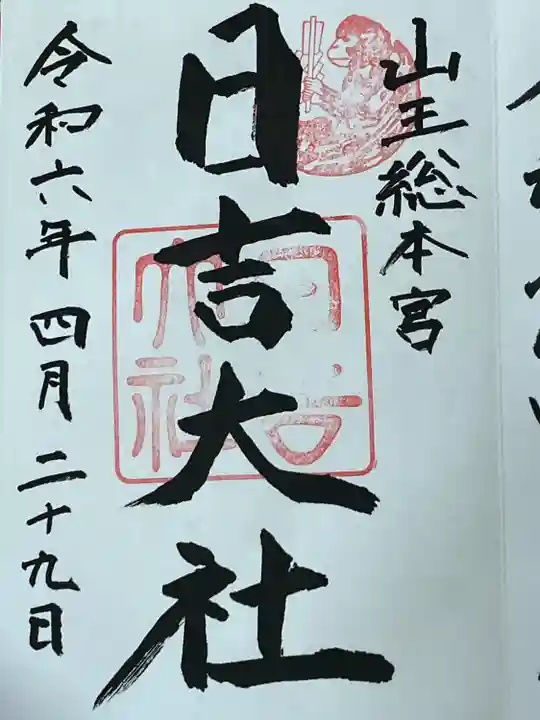 山王総本宮
日吉大社
日吉大社
令和六年四月二十九日